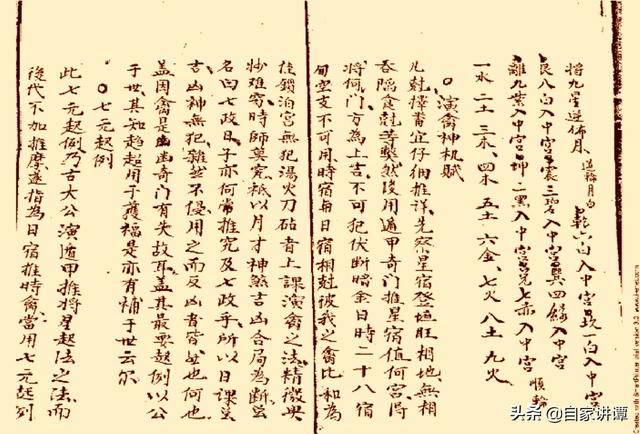 將九星逆佈月 逆輪月白 乾六白入中宮 坎一白入中宮
艮八白入中宮 震三碧入中宮 巽四綠入中宮
離九紫入中宮 坤二黑入中宮 兌七赤入中宮 順輪
一水 二土 三木 四木 五土 六金 七火 八土 九火
○演禽神机賦
凡尅擇蓄宜仔細推詳先察星宿登垣旺相地無相
吞隔食尅等獸然後用遁甲奇門推星宿值何宮得
將何門方為上吉不可犯伏斷暗金日時二十八宿
旬空支不可用時宿与日宿相尅彼我之禽比和為
佳鎖泊宮無犯湯火刀砧者上課演禽之法精微奥
妙难穷時師莫究祇以月才神煞吉凶合局為断
名曰七政日子亦何常推究及七政乎所以日課
吉凶神無犯雜煞不侵用之而反凶者皆此也何也
盖因禽是幽奇门有失故耳盖其最要起例以公
于世其知趋趍用于獲福是亦有補于世云尔
○七元起例
此七元起例乃古大公演遁甲推將星起法之法而
後代不加推摩遂指為日宿推時禽當用七元起列
头条 @自家讲谭